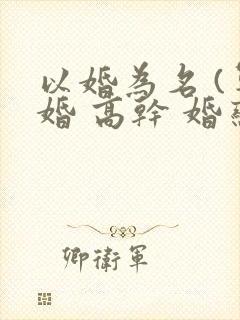 以婚為名(
婚 高幹 婚
卿衛軍